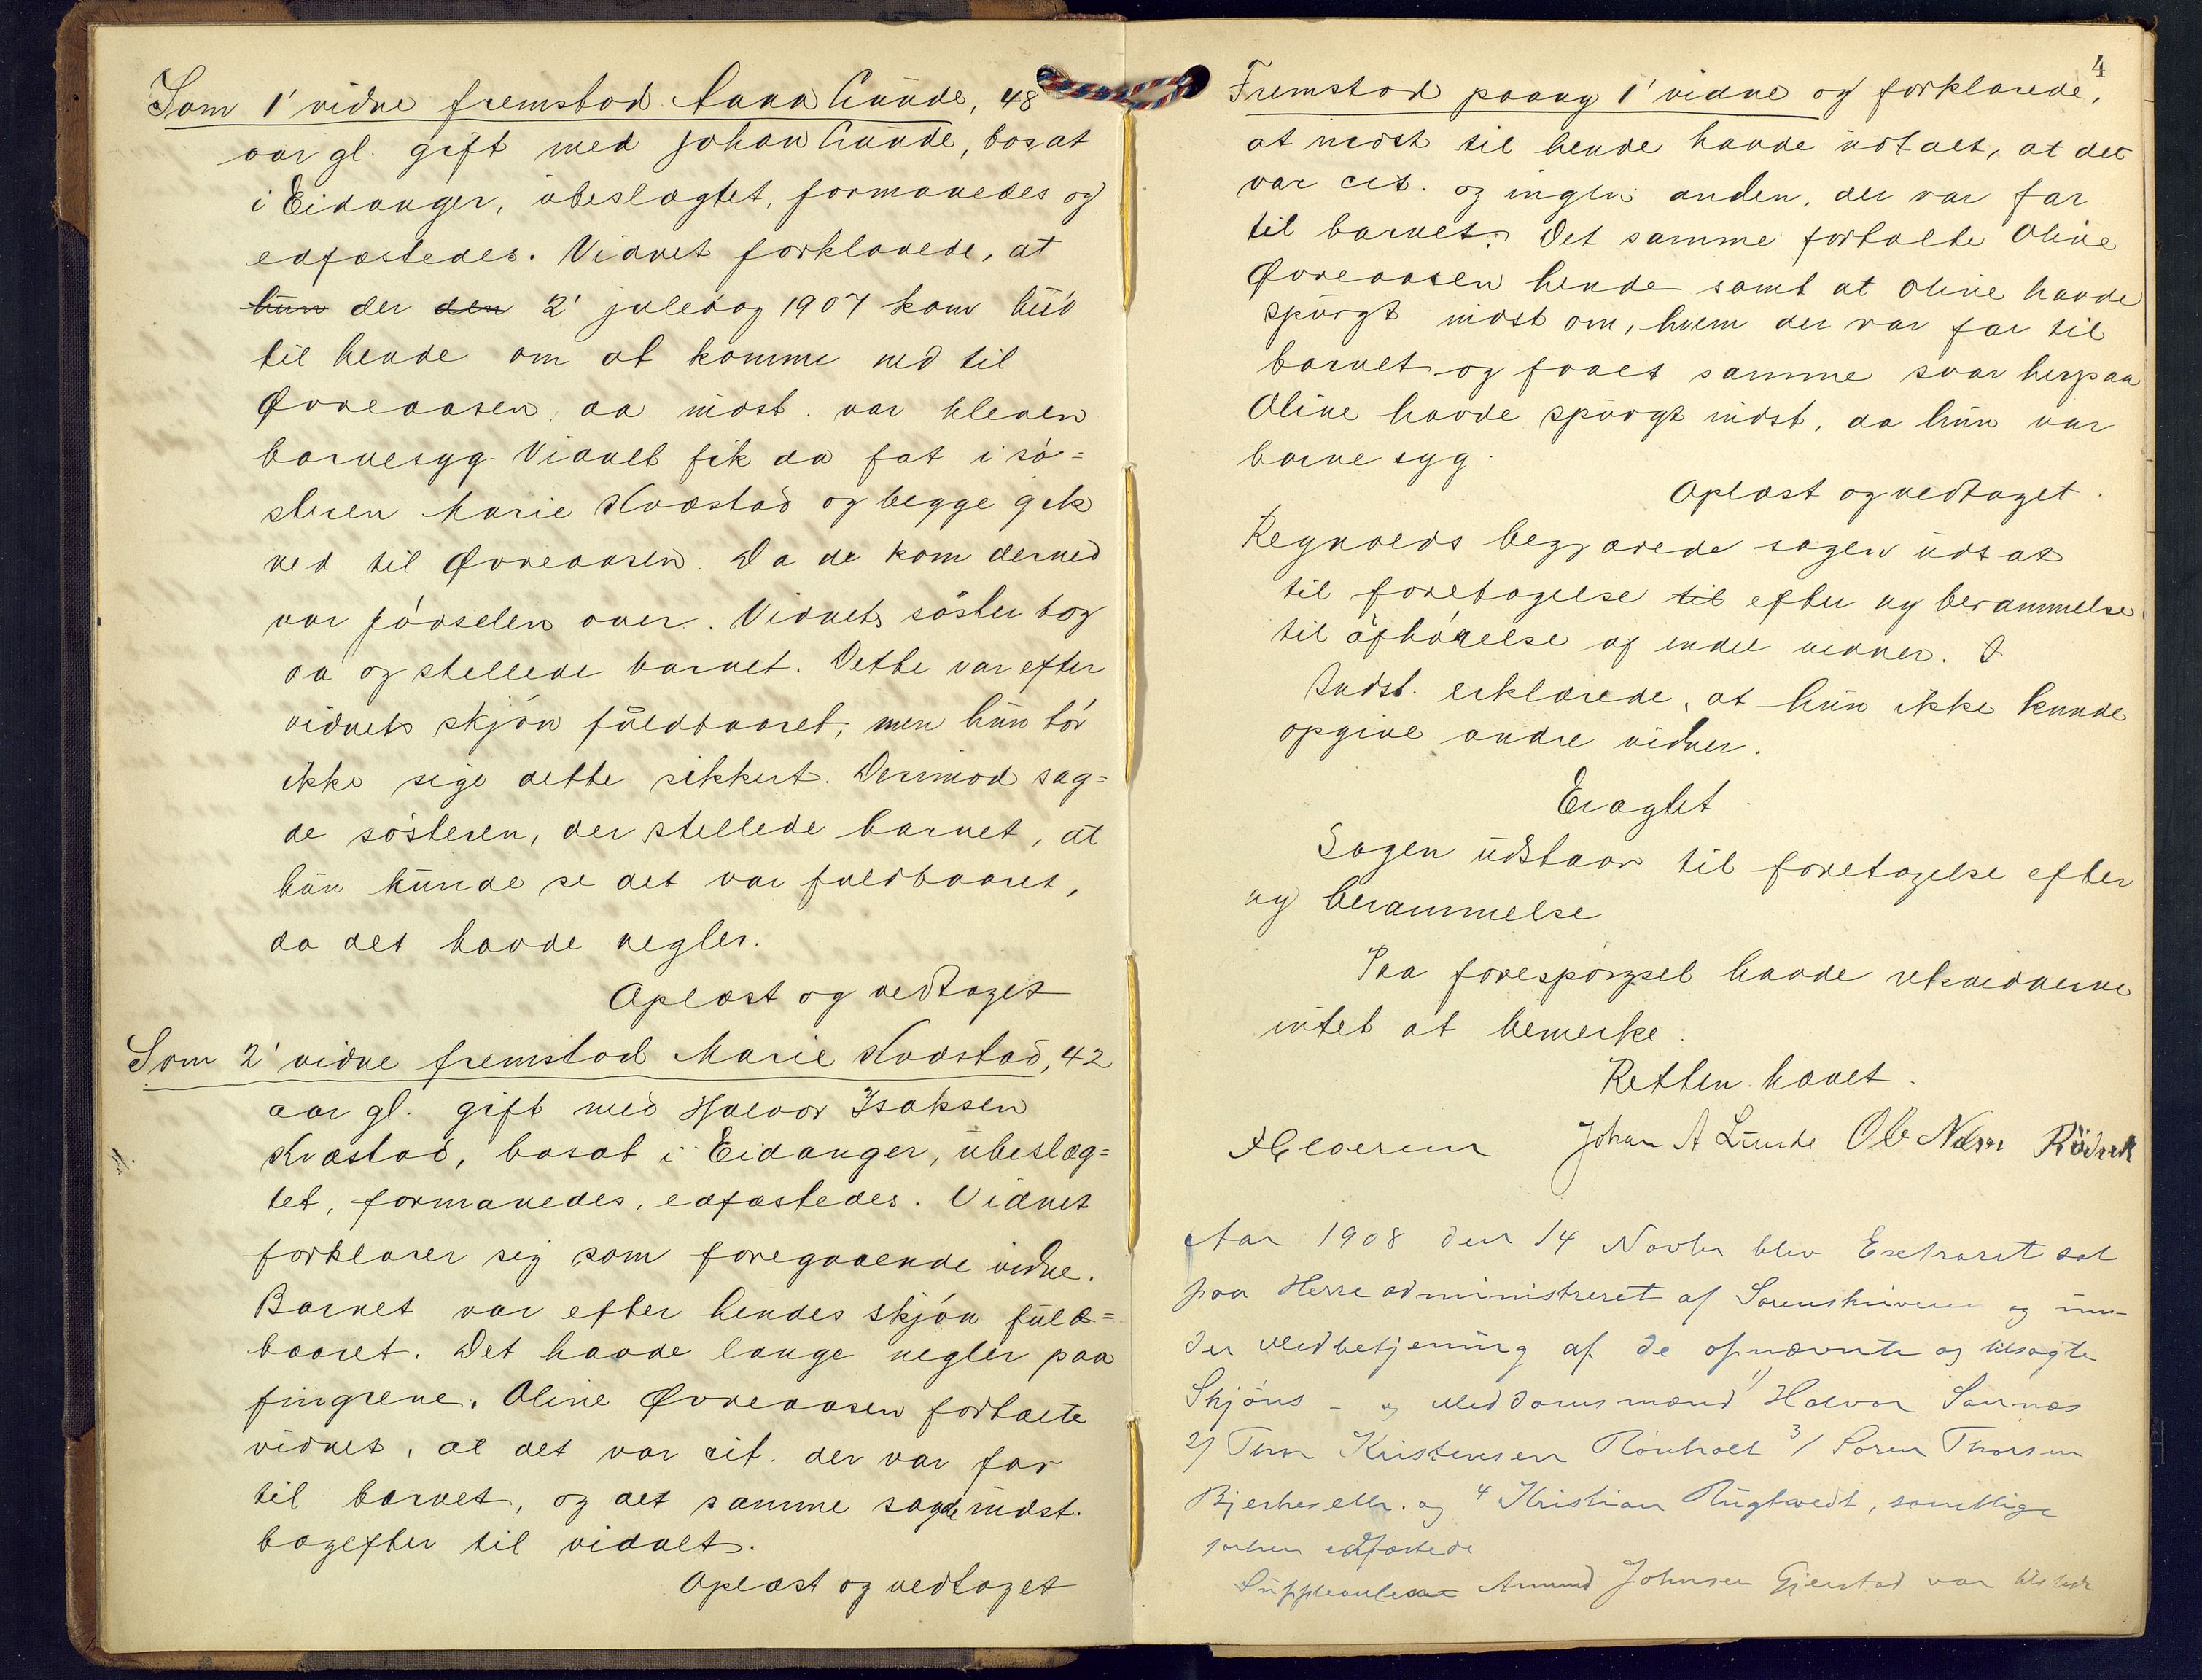 Som 1' vidne fremstod Anna Lunde, 48
aar gl. gift med Johan Lunde, bosat
i Eidanger, ubeslægtet, formanedes og
edfæstedes. Vidnet forklarede, at
hun der den 2' juledag 1907 kom bud
til hende om at komme ned til
Øvreaasen, da indst. var bleven
barnesyg. Vidnet fik da fat i sö=
steren Marie Kvæstad og begge gik
ned til Øvreaasen. Da de kom derned
var födselen over. Vidnets söster tog
da og stellede barnet. Dette var efter
vidnets skjön fuldbaaret, men hun tör
ikke sige dette sikkert. Derimod sag=
de sösteren, der stellede barnet, at
hun kunde se det var fuldbaaret,
da det havde negler.
Oplæst og vedtaget
Som 2' vidne fremstod Marie Kvæstad, 42
aar gl. gift med Halvor Isaksen
Kvæstad, bosat i Eidanger, ubeslæg=
tet, formanedes, edfæstedes. Vidnet
forklarer sig som foregaaende vidne.
Barnet var efter hendes skjön fuld=
baaret. Det havde lange negler paa
fingrene. Oline Øvreaasen fortalte
vidnet, at det var cit. der var far
til barnet, og det samme sagde indst.
bagefter til vidnet.
Oplæst og vedtaget
4
Fremstod paany 1' vidne og forklarede,
at indst til hende havde udtalt, at det
var cit. og ingen anden, der var far
til barnet. Det samme fortalte Oline
Øvreaasen hende samt at Oline havde
spurgt indst om, hvem der var far til
barnet og faaet samme svar herpaa
Oline havde spurgt indst, da hun var
barnesyg.
Oplæst og vedtaget.
Reynolds begjærede sagen udsat
til foretagelse til efter ny berammelse
til afhörelse af endel vidner.
Indst. erklærede, at hun ikke kunde
opgive andre vidner.
Eragtet
Sagen udstaar til foretagelse efter
ny berammelse
Paa forespörgsel havde retsvidnerne
intet at bemerke.
Retten hævet.
Johan A Lunde Ole
Aar 1908 den 14 Novbr blev Extraret sat
paa Herre administreret af Sorenskriveren og un-
der Medbetjening af de opnævnte og tilsagte
Skjöns- og Meddomsmænd 1) Halvor Sannæs
2) Thor Kristensen Rönholt 3/ Soren Thorsen
og 4 Kristian Rugtvedt, samtlige
forhen edfæstede
Suppleanten Amund Johnsen Gjerstad var tilstede